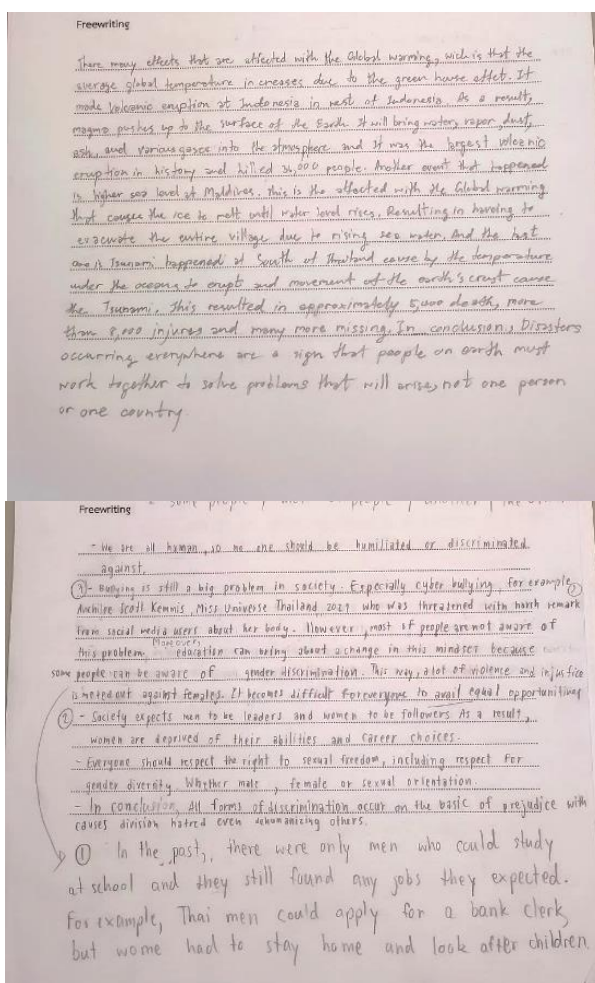 Freewriting
There many effects that are affected with the Global warming, wich is that the
average global temperature increases due to the green house effct. It
made Volcanic eruption at Indonesia in west of Indonesia. As a result,
magma pushes up to the surface of the Earth. It will bring water, vapor, dust,
ash, and various gasse into the atmosphere and It was the largest volcanic
eruption in history and killed 36,000 people. Another event that happened
is higher sea level at Maldives. This is the affected with the Global warming
that causes the ice to melt until water level rises. Resulting in haveing to
evacuate the entire village due to rising sea water. And the last
one is Tsunami happened at South of Thailand cause by the temperature
under the oceans to erupts and movement of the earth's crust cause
the Tsunami. This resulted in approximately 5,000 death, more
than 8,000 injures and many more missing. In conclusion, Disasters
occurring everywhere are a sign that people on earth must
work together to solve problems that will arise, not one person
or one country
some people people another the
Freewriting
- We are all human, so no one should be humiliated or discriminated
against.
③- Bullying is still a big problem in society. Especially cyber bullying, for example, ②
Anchilee Scott Kemmis, Miss Universe Thailand 2021 who was threatened with harsh remark
from social media users about her body. However, most of people are not aware of
this problem. Moreover, education can bring about a change in this mindset because
some people can be aware of gender discrimination. This way, a lot of violence and injustice
is meted out against females. It becomes difficult for everyone to avail equal opportunities
② - Society expects men to be leaders and women to be followers. As a result,
women are deprived of their abilities and career choices.
- Everyone should respect the right to sexual freedom, including respect for
gender diversity. Whether male, female or sexual orientation.
- In conclusion, All forms of discrimination occur on the basic of prejudice with
causes division hatred even dehumanizing others.
① In the past, there were only men who could study
at school and they still found any jobs they expected.
For example, Thai men could apply for a bank clerk,
but wome had to stay home and look after children.